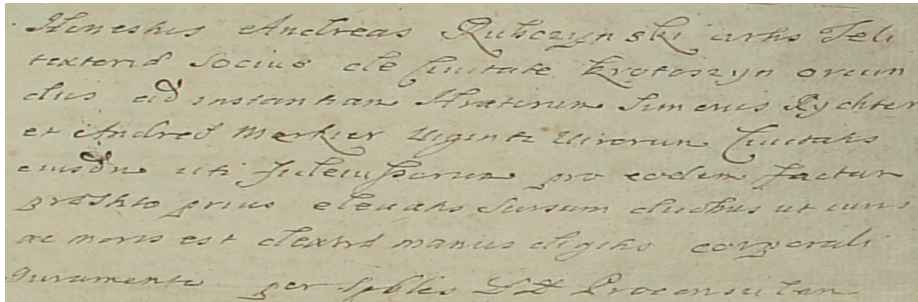 Honestus Andreas Rubczynski artis Teli
textoriæ Socius de Civitate Krotoszyn oriun
dus ad instantiam Simonis Rychter
et Andreæ Merkier Viginti Virorum Civitatis
eiusdm uti Fideiussorum pro eodem factur
præstito prius elevatis sursum duobus ut iuris
ac moris est dextræ manus digitis corporali
Juramento per Spbles DD Proconsulem